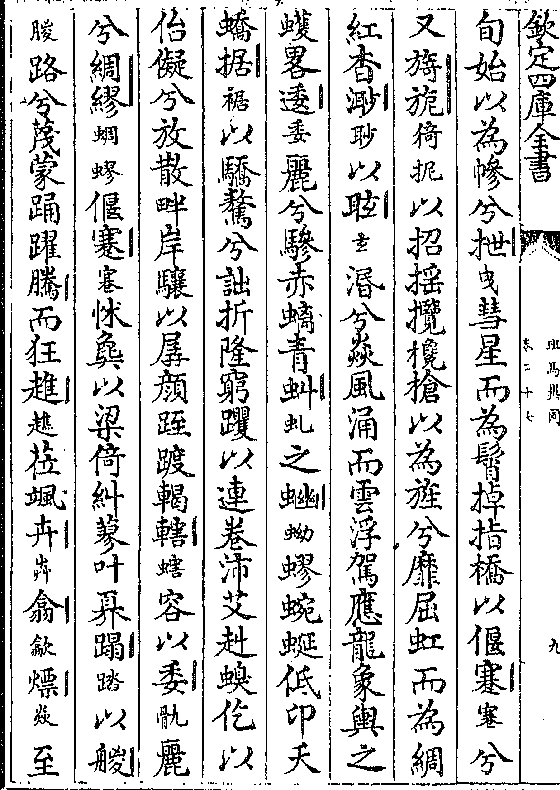 欽定四庫全書
班馬異同
卷二十七
九
旬始以為幓兮抴曳彗星而為髾掉指橋以偃蹇蹇兮
又旖旎猗抳以招摇攬欃槍以為旌兮靡屈虹而為綢
紅杳渺眇以眩玄湣兮猋風涌而雲浮駕應龍象輿之
蠖畧逶委麗兮驂赤螭青虯虬之蚴蟉蜿蜒低卬夭
蟜据裾以驕驁兮詘折隆窮躩以連卷沛艾赳螑仡以
佁儗兮放散畔岸驤以孱顔跮踱輵轄螛容以委骩麗
兮綢繆蜩蟉偃蹇蹇怵㚟以梁倚糾蓼叶奡蹋踏以艐
朡路兮蔑蒙踊躍騰而狂趡趭莅颯卉芔翕歙熛猋至